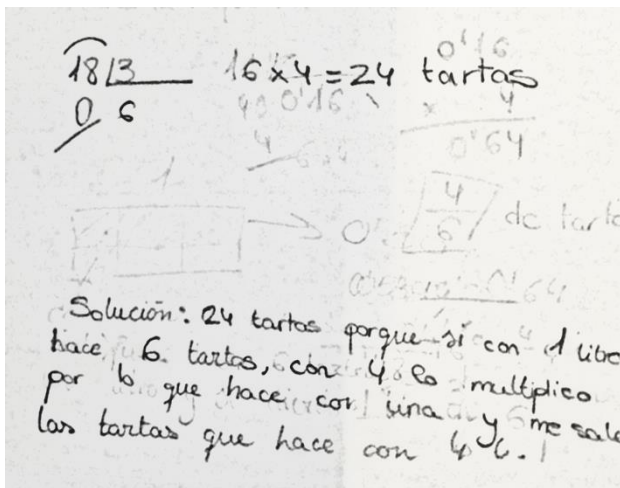 18 | 3
0 6
16 x 4 = 24 tartas
0'16
x 4
0'64
0'16
4
1
0'
4/6 de tarta
0'64
Solución: 24 tartas porque si con 1 litro
hace 6 tartas, con 4 lo multiplico
por lo que hace con una y me sale
las tartas que hace con 4 L.